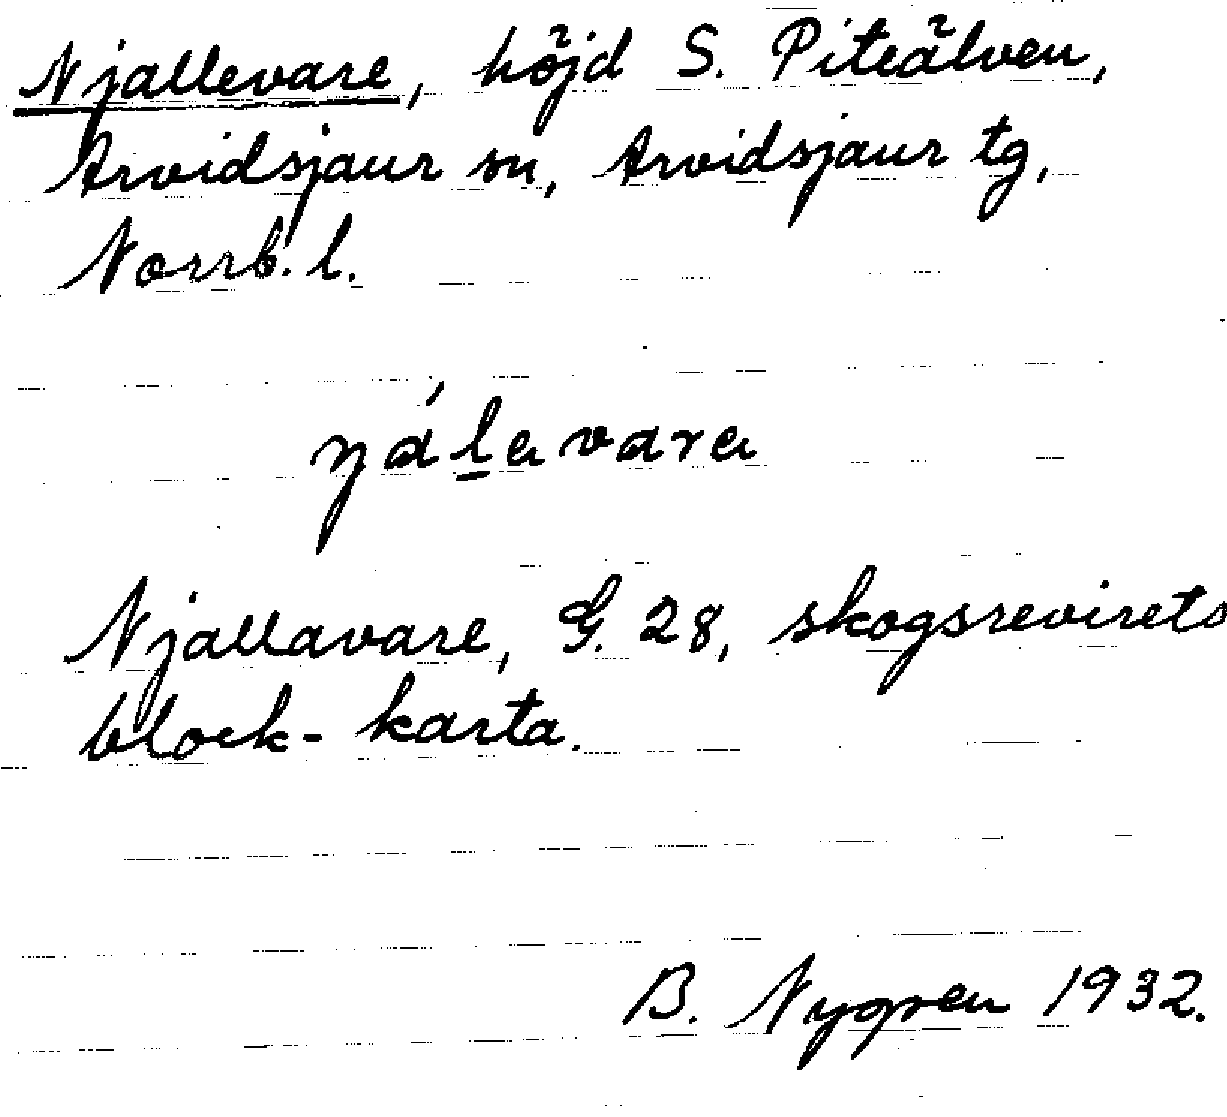 Njallevare, höjd S. Piteälven,
Arvidsjaur sn, Arvidsjaur tg,
Norrb. l.
Njallavare, G. 28, skogsrevirets
block-karta.
B. Nygren 1932.